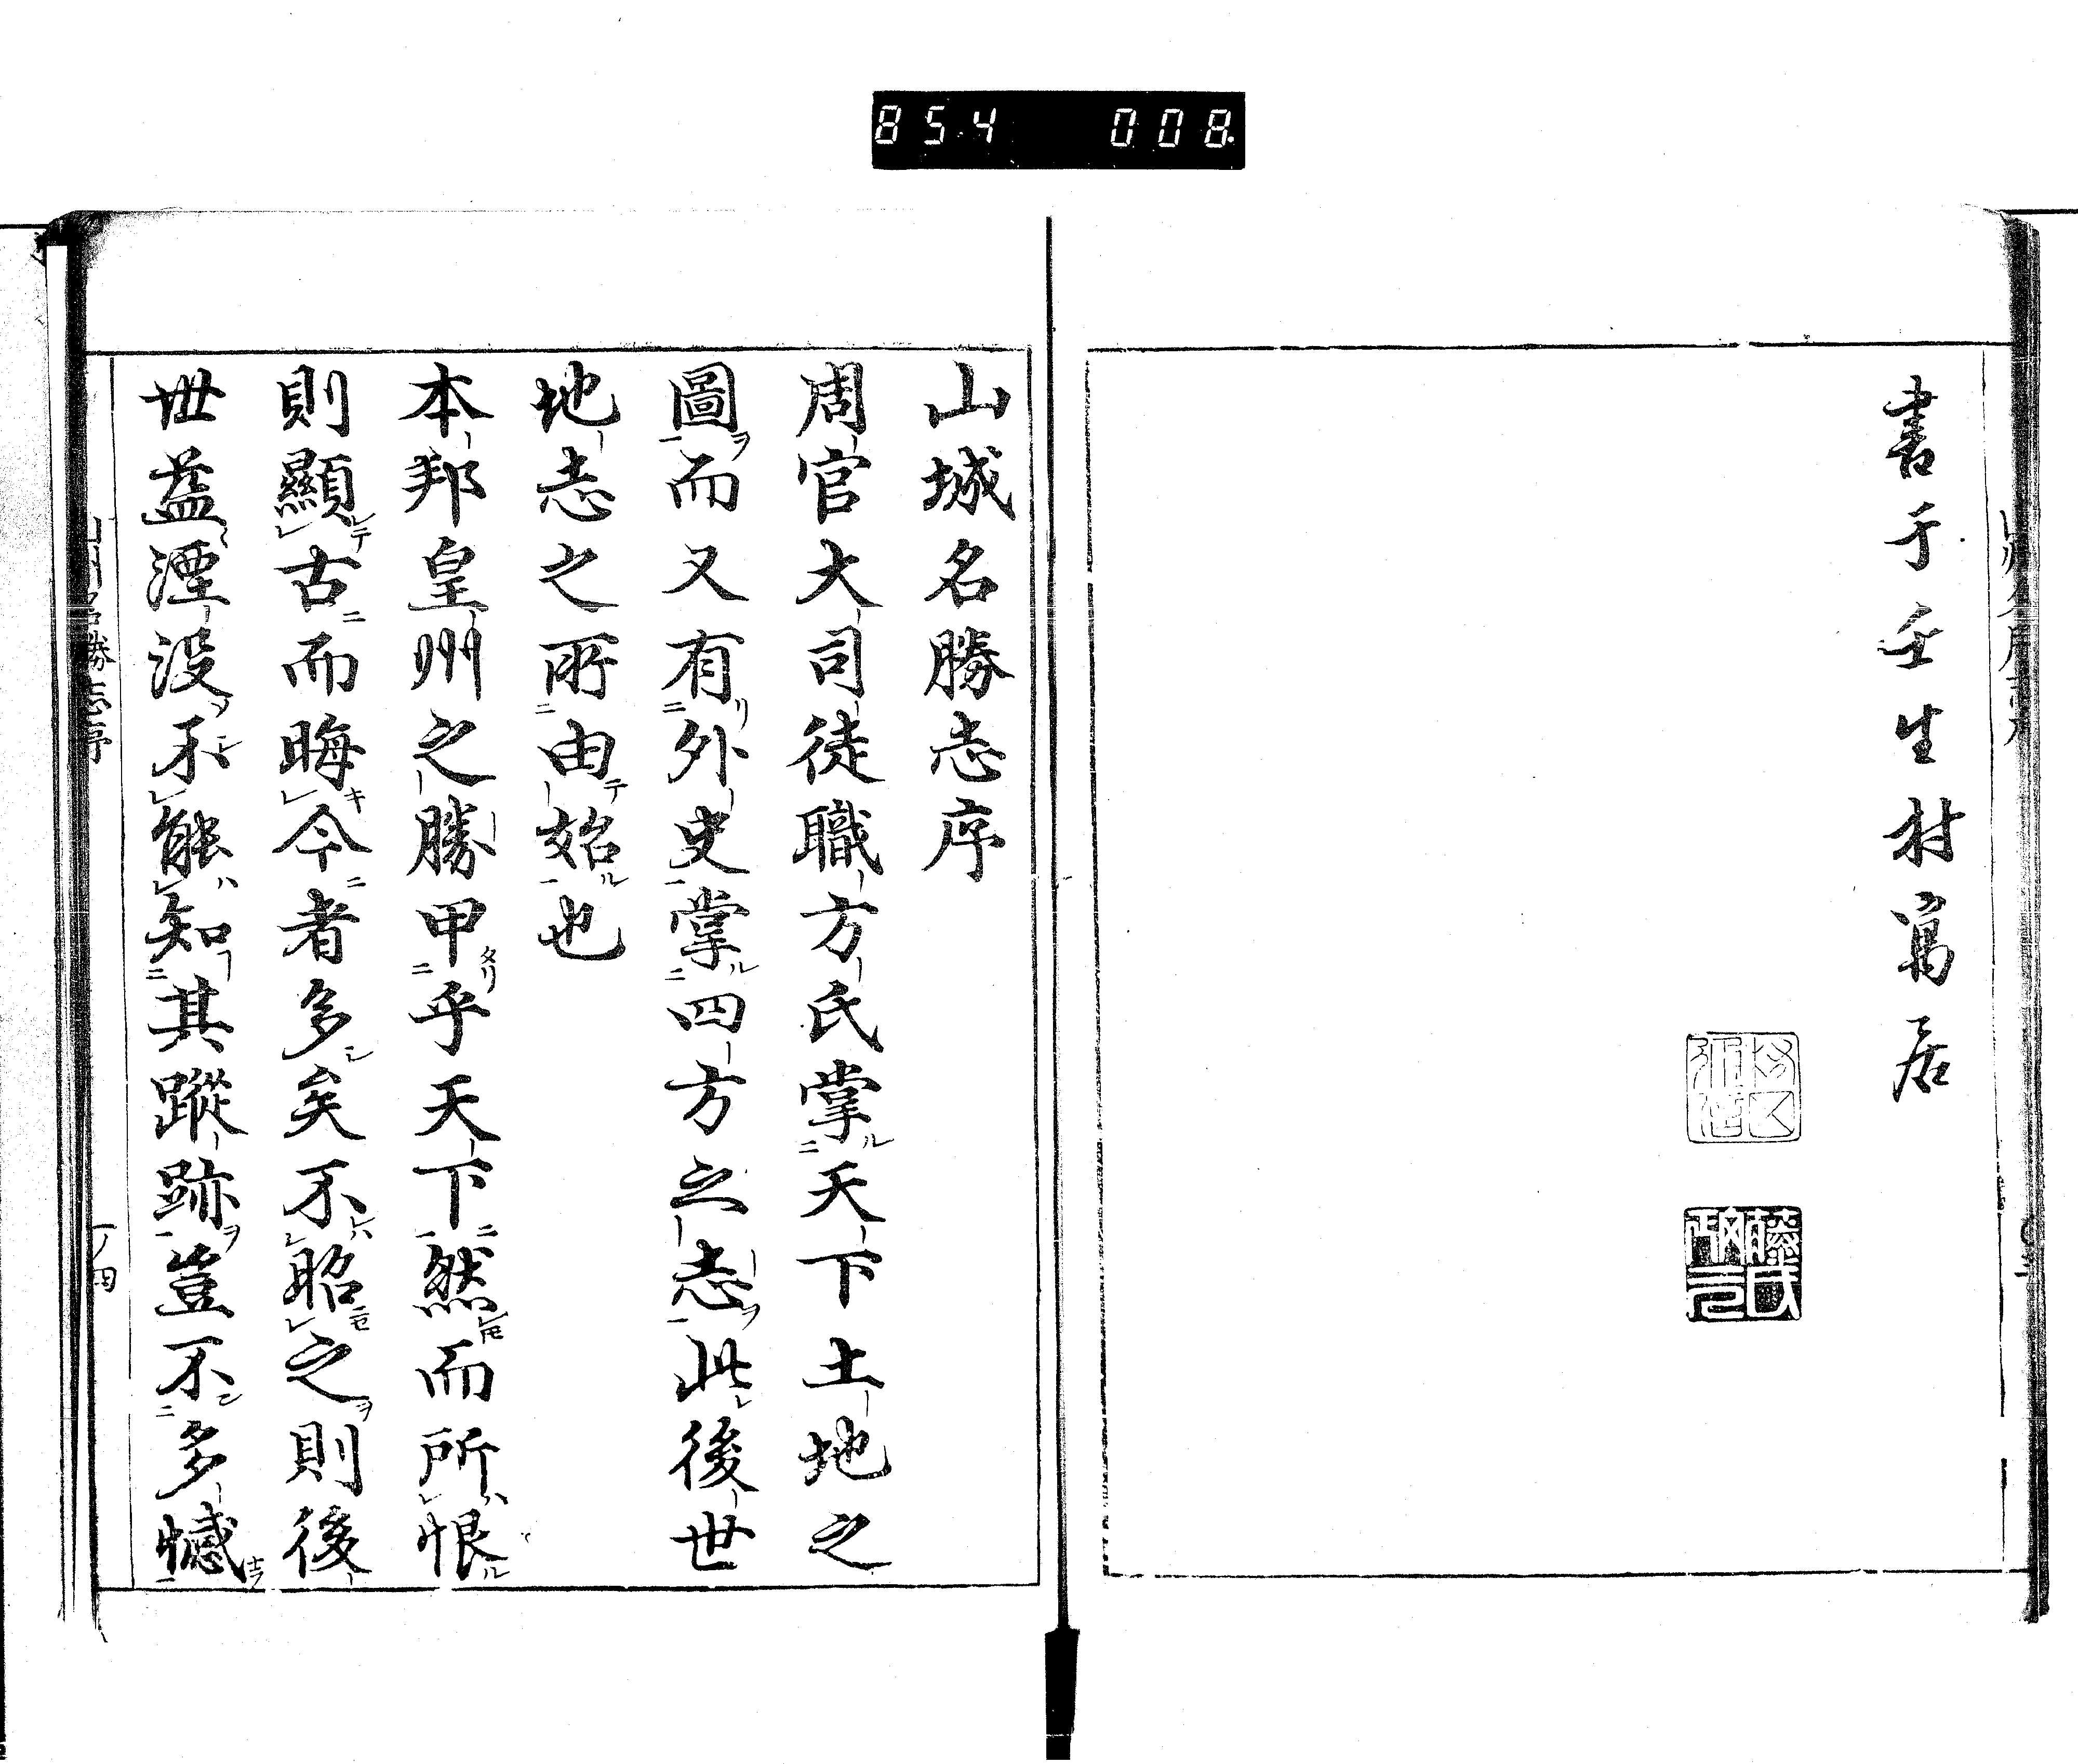 854 008
書于壬生村寓居
藤氏
山城名勝志序
周官大司徒職方氏掌天下土地之
圖而又有外史掌四方之志此後世
地志之所由始也
本邦皇州之勝甲乎天下然而所恨
則顯古而晦今者多矣不昭之則後
世益湮没不能知其蹤跡豈不多憾